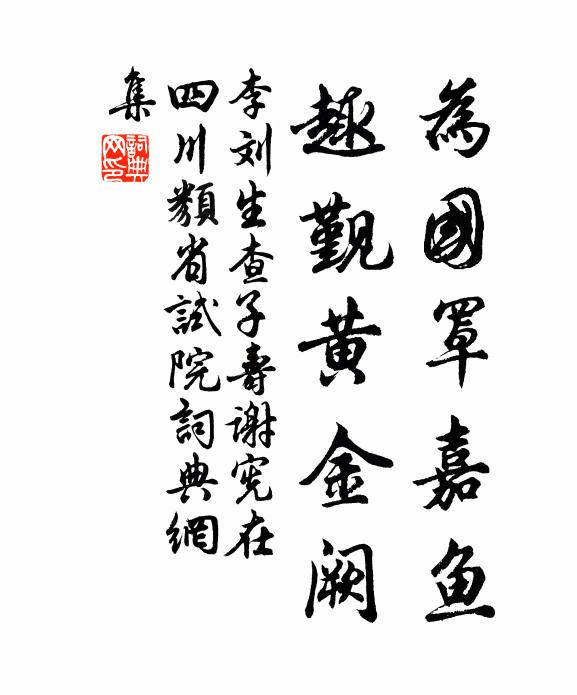 為國罩嘉魚
趣覲黃金闕
李刘生查子壽谢宪在
四川類省試院詞典網
集
詞典
网印